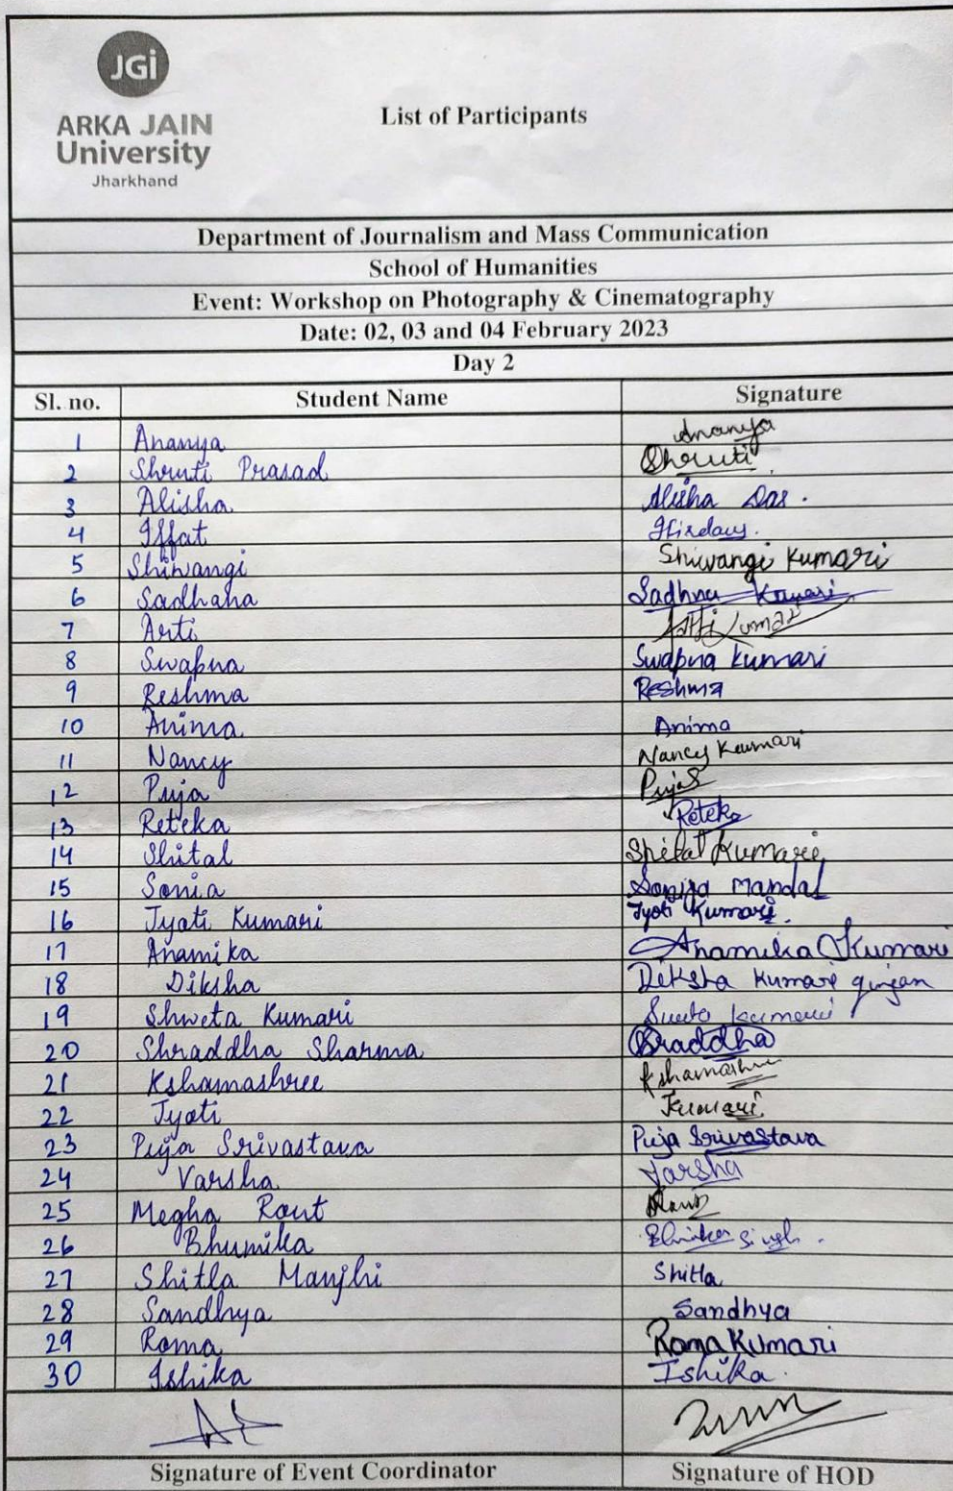 JGi
ARKA JAIN
University
Jharkhand
List of Participants
Department of Journalism and Mass Communication
School of Humanities
Event: Workshop on Photography & Cinematography
Date: 02, 03 and 04 February 2023
Day 2
Sl. no. Student Name Signature
1 Ananya Ananya
2 Shruti Prasad Shruti
3 Alisha Alisha Das.
4 Iffat Ifirdaus.
5 Shiwangi Shiwangi Kumari
6 Sadhana Sadhna Kumari
7 Arti Arti Kumari
8 Swapna Swapna Kumari
9 Reshma Reshma
10 Anima Anima
11 Nancy Nancy Kumari
12 Puja Puja
13 Reteka Reteka
14 Shital Shital Kumari
15 Sonia Mandal
16 Jyoti Kumari Jyoti Kumari.
17 Anamika Anamika Kumari
18 Diksha Diksha Kumari
19 Shweta Kumari Kumari
20 Shraddha Sharma Sraddha
21 Kshamashree Kshamashree
22 Jyoti Kumari
23 Puja Srivastava Puja Srivastava
24 Varsha Varsha
25 Megha Rout
26 Bhumika Singh.
27 Shitla Manjhi Shitla
28 Sandhya Sandhya
29 Roma Roma Kumari
30 Ishika Ishika.
Signature of Event Coordinator Signature of HOD